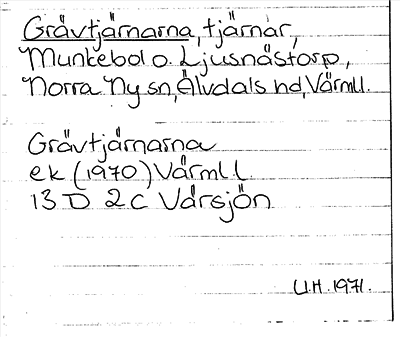 Grävtjärnarna, tjärnar,
Munkebol o. Ljusnästorp,
Norra Ny sn, Älvdals hd, Värml.
Grävtjärnarna
ek (1970) Värml.l
13 D 2c Vårsjön
U.H. 1971.